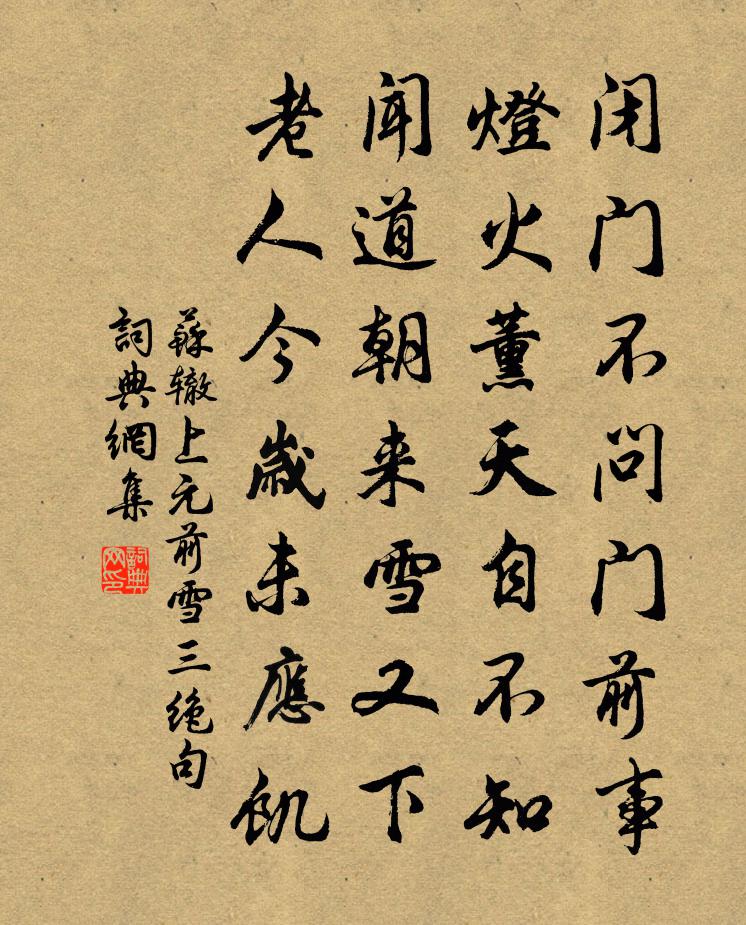 闭门不问门前事
燈火薰天自不知
闻道朝来雪又下
老人今歳未應飢
蘇辙上元前雪三绝句
詞典網集
詞典网印